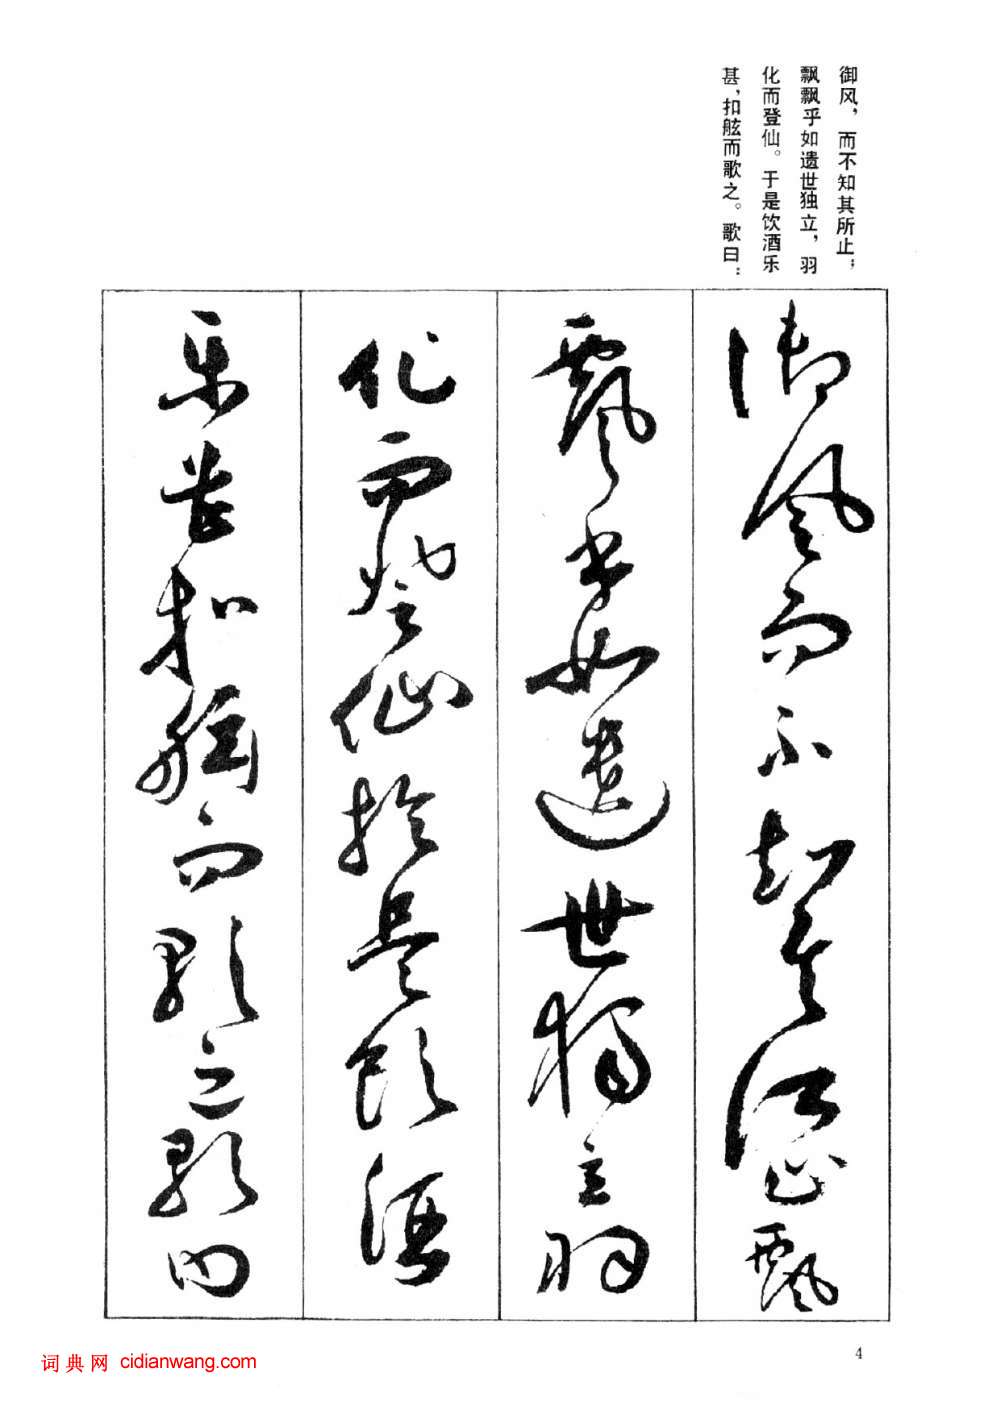 御风，而不知其所止；
飘飘乎如遗世独立，羽
化而登仙。于是饮酒乐
甚，扣舷而歌之。歌曰：
御風而不知其所止飄
飄乎如遺世獨立羽
化而登仙於是飲酒
樂甚扣舷而歌之歌曰
4
词典网 cidianwang.com